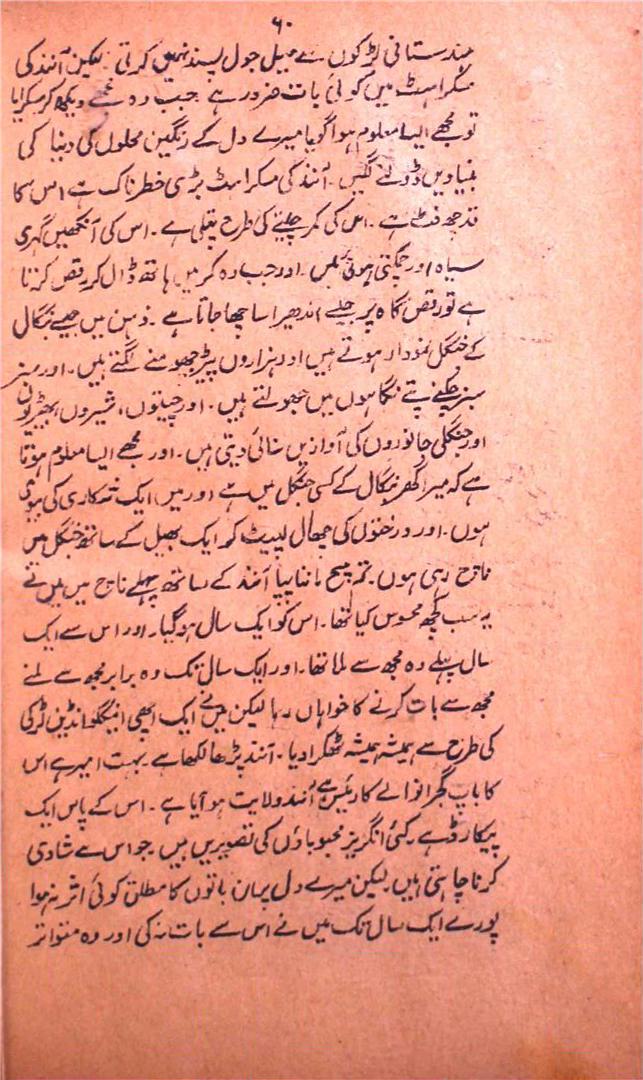 ۶۰
ہندستانی لڑکوں سے میل جول پسند نہیں کرتی لیکن آنند کی
مسکراہٹ میں کوئی بات ضرور ہے جب وہ مجھے دیکھ کر مسکرایا
تو مجھے ایسا معلوم ہوا گویا میرے دل کے رنگین محلوں کی دنیا کی
بنیادیں ڈولنے لگیں۔ آنند کی مسکراہٹ بڑی خطرناک ہے اس کا
قد چھ فٹ ہے۔ اس کی کمر چیتے کی طرح پتلی ہے۔ اس کی آنکھیں گہری
سیاہ اور چمکتی ہوئی ہیں۔ اور جب وہ کمر میں ہاتھ ڈال کر رقص کرتا
ہے تو رقص گاہ پر جیسے اندھیرا سا چھا جاتا ہے۔ ذہن میں جیسے بنگال
کے جنگل نمودار ہوتے ہیں اور ہزاروں پیڑ جھومنے لگتے ہیں۔ اور سبز
سبز چکنے پتے نگاہوں میں جھولتے ہیں۔ اور چیتوں، شیروں، بھیڑیوں
اور جنگلی جانوروں کی آوازیں سنائی دیتی ہیں۔ اور مجھے ایسا معلوم ہوتا
ہے کہ میرا گھر بنگال کے کسی جنگل میں ہے اور میں ایک شکاری کی بیوی
ہوں۔ اور درختوں کی چھال لپیٹ کر ایک بھیل کے ساتھ جنگل میں
ناچ رہی ہوں۔ تم سچ ماننا پپا آنند کے ساتھ پہلے ناچ میں میں نے
یہ سب کچھ محسوس کیا تھا۔ اس کو ایک سال ہو گیا۔ اور اس سے ایک
سال پہلے وہ مجھ سے ملا تھا۔ اور ایک سال تک وہ برابر مجھ سے ملنے
مجھ سے بات کرنے کا خواہاں رہا لیکن میں نے ایک اچھی اینگلو انڈین لڑکی
کی طرح سے ہمیشہ ہمیشہ ٹھکرا دیا۔ آنند پڑھا لکھا ہے بہت امیر ہے اس
کا باپ گجرانوالے کا رئیس ہے آنند ولایت ہو آیا ہے۔ اس کے پاس ایک
پیکارڈ ہے۔ کئی انگریز محبوباؤں کی تصویریں ہیں جو اس سے شادی
کرنا چاہتی ہیں۔ لیکن میرے دل پر ان باتوں کا مطلق کوئی اثر نہ ہوا
پورے ایک سال تک میں نے اس سے بات نہ کی اور وہ متواتر